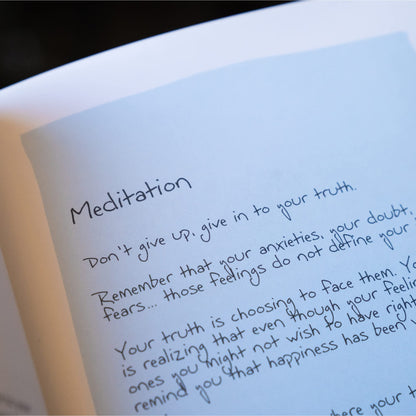 Meditation
Don't give up, give in to your truth.
Remember that your anxieties, your doubt,
fears... those feelings do not define your
Your truth is choosing to face them.
is realizing that even though your
ones you might not wish to have right
remind you that happiness has been
where your